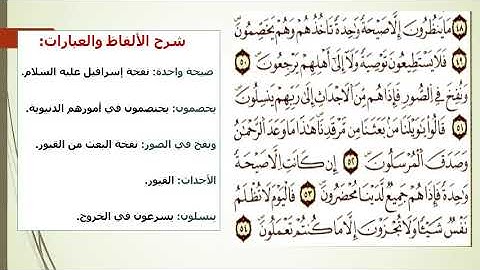 شرح الألفاظ والعبارات:
صيحة واحدة: نفخة إسرافيل عليه السلام.
يخصمون: يختصمون في أمورهم الدنيوية.
ونفخ في الصور: نفخة البعث من القبور.
الأجداث: القبور.
ينسلون: يسرعون في الخروج.
٤٨ مَا يَنظُرُونَ إِلَّا صَيْحَةً وَاحِدَةً تَأْخُذُهُمْ وَهُمْ يَخِصِّمُونَ
٤٩ فَلَا يَسْتَطِيعُونَ تَوْصِيَةً وَلَا إِلَىٰ أَهْلِهِمْ يَرْجِعُونَ ٥٠
وَنُفِخَ فِي الصُّورِ فَإِذَا هُم مِّنَ الْأَجْدَاثِ إِلَىٰ رَبِّهِمْ يَنسِلُونَ
٥١ قَالُوا يَا وَيْلَنَا مَن بَعَثَنَا مِن مَّرْقَدِنَا هَٰذَا مَا وَعَدَ الرَّحْمَٰنُ
وَصَدَقَ الْمُرْسَلُونَ ٥٢ إِن كَانَتْ إِلَّا صَيْحَةً
وَاحِدَةً فَإِذَا هُمْ جَمِيعٌ لَّدَيْنَا مُحْضَرُونَ ٥٣ فَالْيَوْمَ لَا تُظْلَمُ
نَفْسٌ شَيْئًا وَلَا تُجْزَوْنَ إِلَّا مَا كُنتُمْ تَعْمَلُونَ ٥٤